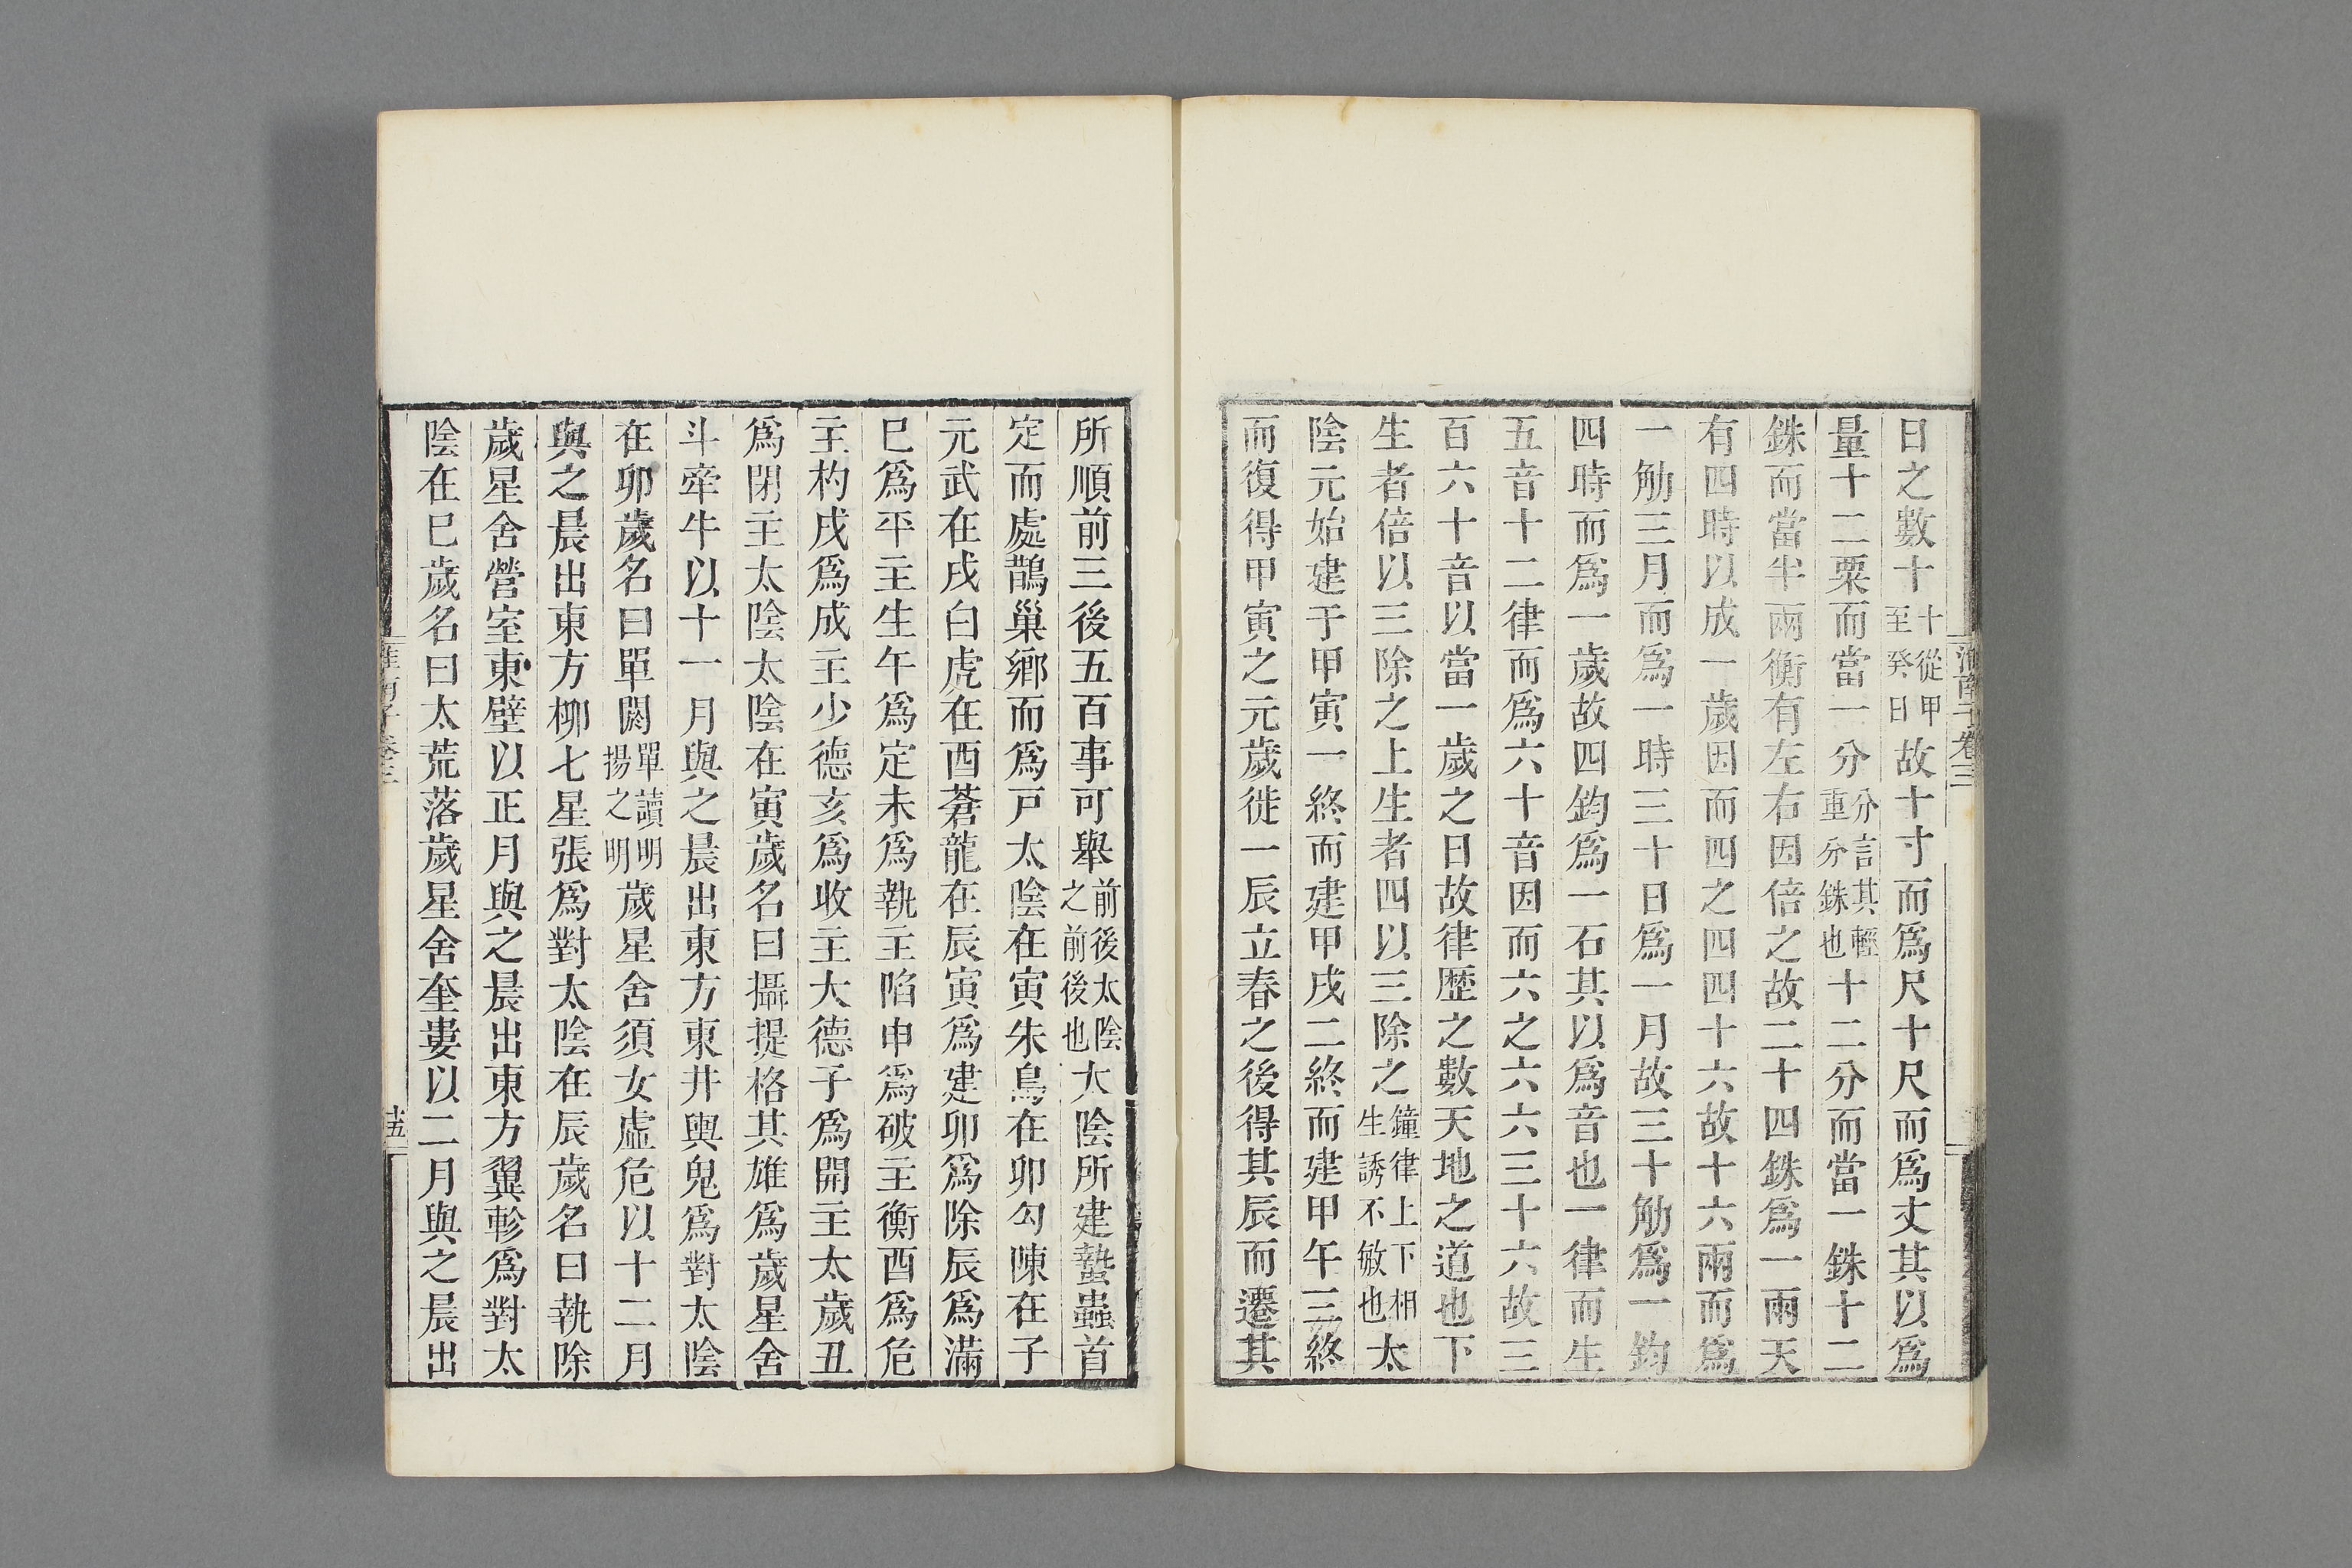 日之數十十從甲至癸日故十寸而爲尺十尺而爲丈其以爲
量十二粟而當一分分言其輕重分銖也十二分而當一銖十二
銖而當半兩衡有左右因倍之故二十四銖爲一兩天
有四時以成一歲因而四之四四十六故十六兩而爲
一觔三月而爲一時三十日爲一月故三十觔爲一鈞
四時而爲一歲故四鈞爲一石其以爲音也一律而生
五音十二律而爲六十音因而六之六六三十六故三
百六十音以當一歲之日故律歷之數天地之道也下
生者倍以三除之上生者四以三除之鐘律上下相生誘不敏也太
陰元始建于甲寅一終而建甲戌二終而建甲午三終
而復得甲寅之元歲徙一辰立春之後得其辰而遷其
所順前三後五百事可舉前後太陰之前後也太陰所建蟄蟲首
定而處鵲巢鄉而爲戸太陰在寅朱鳥在卯勾陳在子
元武在戌白虎在酉蒼龍在辰寅爲建卯爲除辰爲滿
巳爲平主生午爲定未爲執主陷申爲破主衡酉爲危
主杓戌爲成主少德亥爲收主大德子爲開主太歲丑
爲閉主太陰太陰在寅歲名曰攝提格其雄爲歲星舍
斗牽牛以十一月與之晨出東方東井輿鬼爲對太陰
在卯歲名曰單閼單讀明揚之明歲星舍須女虛危以十二月
與之晨出東方柳七星張爲對太陰在辰歲名曰執除
歲星舍營室東壁以正月與之晨出東方翼軫爲對太
陰在巳歲名曰大荒落歲星舍奎婁以二月與之晨出
淮南子卷三
淮南子卷三
十五